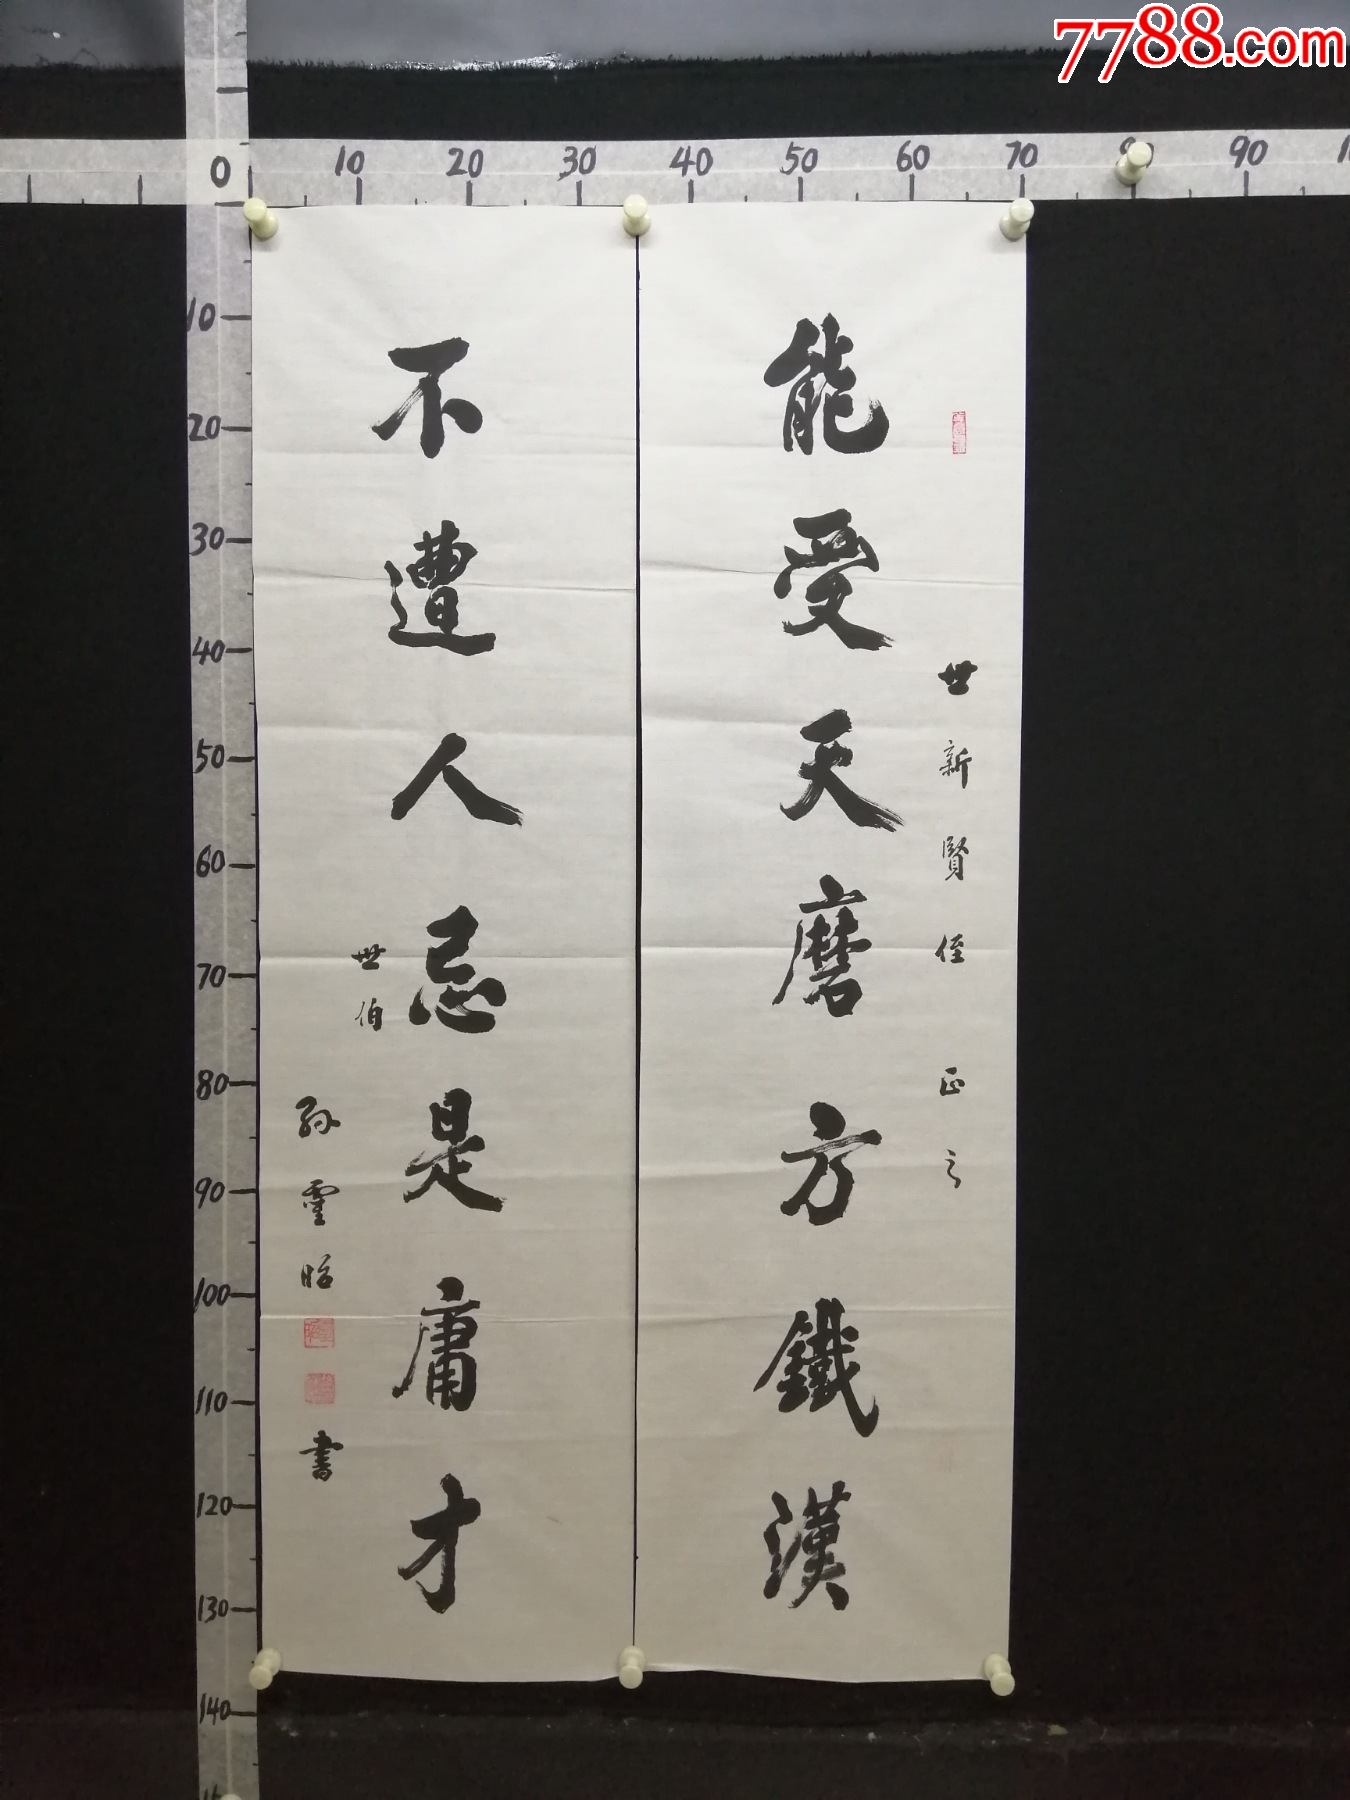 7788.com
0 10 20 30 40 50 60 70 80 90
10
20
30
40
50
60
70
80
90
100
110
120
130
140
能受天磨方鐵漢
世新賢侄正之
不遭人忌是庸才
世伯
孫霊昭書